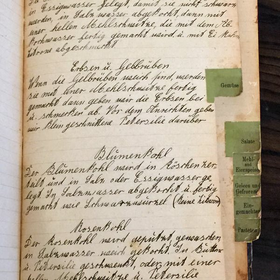 Essigwasser gelegt, damit sie nicht schwarz
werden, in Salzwasser abgekocht, dann mit
einer hellen Mehlschwitze, die mit dem
Kochwasser fertig gemacht wird u. mit Ei
abgeschmeckt
Erbsen u. Gelbrüben
Wenn die Gelbrüben weich sind, werden
sie mit einer Mehlschwitze fertig
gemacht dann geben wir die Erbsen bei
u. schmecken ab. Vor dem Anrichten geben
wir klein geschnittene Petersilie darüber
Blumenkohl
Der Blumenkohl wird in Röschen zer-
teilt und in Salz oder Essigwasser ge-
legt. In Salzwasser abgekocht u. fertig
gemacht wie Schwarzwurzel
Rosenkohl
Der Rosenkohl wird geputzt gewaschen
in Salzwasser weich gekocht. In Butter
u. Petersilie geschwenkt, oder mit einer
Mehlschwitze u. Petersilie
Gemüse
Salate
Mehl- und